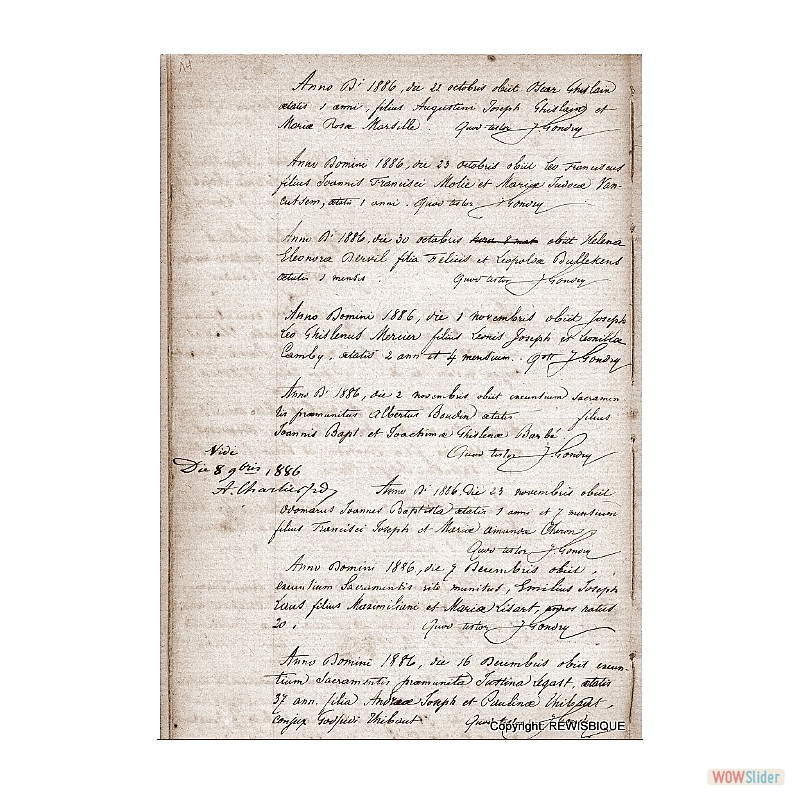 14
Anno Di 1886, die 22 octobris obiit Oscar Ghislain
aetatis 1 anni, filius Augustini Joseph Ghislain et
Mariae Rosae Marsille. Quod testor J Gondry
Anno Domini 1886, die 23 octobris obiit Leo Franciscus
filius Joannis Francisci Molie et Mariae Judocae Van-
cutsem, aetatis 1 anni. Quod testor J Gondry
Anno Di 1886, die 30 octobris obiit Helena
Eleonora Dervil filia Felicis et Leopolda Bullekens
aetatis 1 mensis. Quod testor J. Gondry
Anno Domini 1886, die 1 novembris obiit Joseph
Leo Ghislenus Mercier filius Leonis Joseph et Leonilla
Camby, aetatis 2 ann et 4 mensium. J Gondry
Anno Di 1886, die 2 novembris obiit exeuntium Sacramen
tis praemunitus Albertus Boudin aetatis filius
Joannis Bapt. et Joachimae Ghislenae Barbé
Quod testor J. Gondry
Vidi
Die 8 9bris 1886
A. Charlier
Anno Di 1886 Die 23 novembris obiit
Odomarus Joannes Baptista aetatis 1 anni et 7 mensium
filius Francisci Joseph et Mariae amanda
Quod testor J. Gondry
Anno Domini 1886, die 9 Decembris obiit,
exeuntium Sacramentis rite munitus, Emilius Joseph
filius Maximiliani et Mariae Lisart, natus
20. Quod testor J Gondry
Anno Domini 1886, die 16 Decembris obiit exeun-
tium Sacramentis praemunita Justina Legast, aetatis
37 ann. filia Andreae Joseph et Paulinae Thibaut,
conjux Godfridi Thibaut Quod testor
Copyright REWISBIQUE
WOWSlider